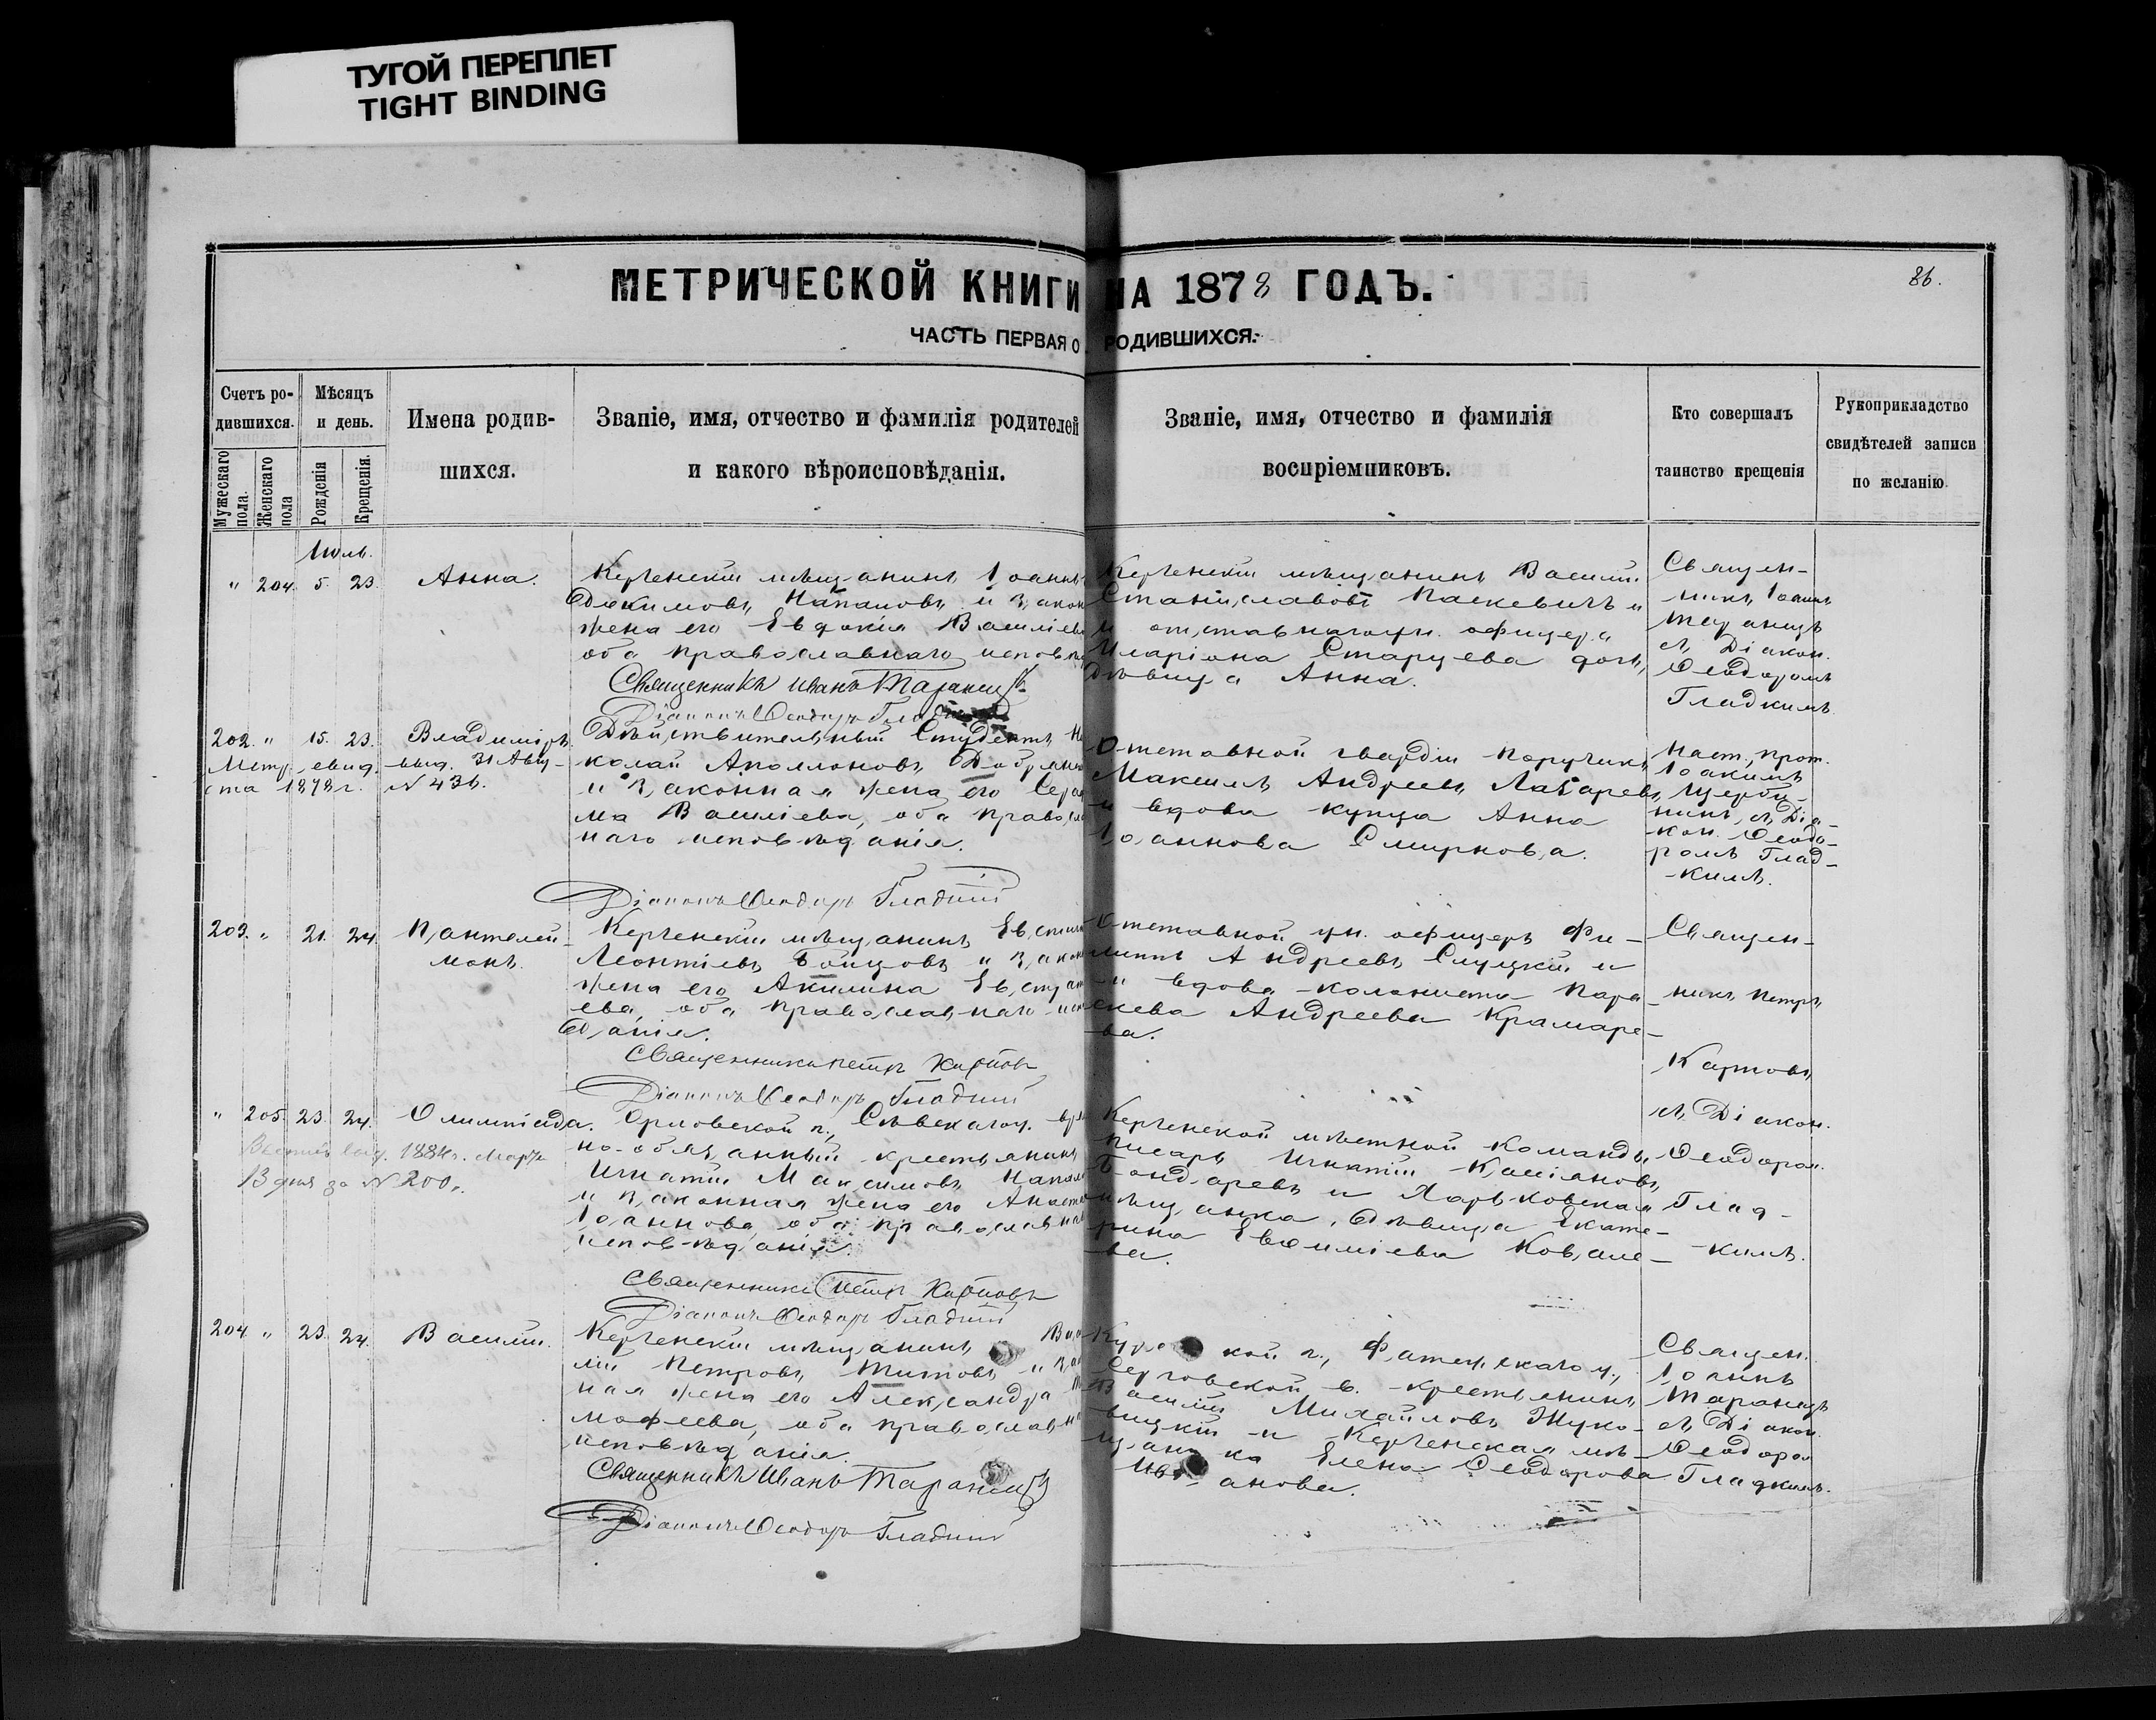 ТУГОЙ ПЕРЕПЛЕТ
TIGHT BINDING
МЕТРИЧЕСКОЙ КНИГИ НА 1878 ГОДЪ.
86.
ЧАСТЬ ПЕРВАЯ О РОДИВШИХСЯ.
Счетъ ро-
дившихся.
Мужескаго пола.
Женскаго пола
Мѣсяцъ
и день.
Рожденія
Крещенія.
Имена родив-
шихся.
Званіе, имя, отчество и фамилія родителей
и какого вѣроисповѣданія.
Званіе, имя, отчество и фамилія
воспріемниковъ.
Кто совершалъ
таинство крещенія
Рукоприкладство
свидѣтелей записи
по желанію
Іюль.
" 204. 5. 23. Анна.
Керченскій мѣщанинъ Іоаннъ
Евдокимовъ и закон
жена его Евдокія Василіев
оба православнаго исповѣд
Священникъ Иванъ Таранецъ
Діаконъ Ѳеодоръ
Керченскій мѣщанинъ Василій
Станиславовъ Паскевичъ и
и отставнаго ун. офицера
Иларіона Старцева дочь,
дѣвица Анна.
Священ-
никъ Іоаннъ
Таранецъ
съ Діакон.
Ѳеодоромъ
Гладкимъ.
202. " 15. 23. Владиміръ.
Метр. свид. выд. 31 Авгу-
ста 1878 г. № 436.
Дѣйствительный Студентъ Ни
колай Аполлоновъ
и законная жена его Сераф
ма Василіева, оба правосла
наго исповѣданія.
Діаконъ Ѳеодоръ Гладкій
Отставной гвардіи Поручикъ
Максимъ Андреевъ Лазаревъ
и вдова купца Анна
Іоаннова Смирнова.
Наст. прот.
Іоакимъ
Щерби-
нинъ, съ Діа-
кон. Ѳеодо-
ромъ Глад-
кимъ.
203. " 21. 24. Пантелей-
монъ.
Керченскій мѣщанинъ
Леонтіевъ Бойцовъ и закон
жена его Акилина Евстрат
ева, оба православнаго исп
ѣданія.
Священникъ Петръ Карповъ
Діаконъ Ѳеодоръ Гладкій
Отставной ун. офицеръ Фи-
липпъ Андреевъ Слуцкій и
и вдова колониста Пара
скева Андреева Крамаре-
ва.
Священ-
никъ Петръ
Карповъ
съ Діакон.
Ѳеодором.
Глад-
кимъ.
" 205. 23. 24. Олимпіада.
выд. 1884 г. Марта
13 дня за № 200.
Орловской г., Сѣвскаго у. вре
но-обязанный крестьянинъ
Игнатій Максимовъ
и законная жена его Анаста
Іоаннова, оба православнаг
исповѣданія.
Священникъ Петръ Карповъ
Діаконъ Ѳеодоръ Гладкій
Керченской мѣстной команды
писарь Игнатій Касіановъ
Бондаревъ и Харьковская
мѣщанка, дѣвица Екате-
рина Евѳиміева Ковале-
ва.
204. " 23. 24. Василій.
Керченскій мѣщанинъ Васи
лій Петровъ Титовъ и зак
ная жена его Александра Ти
мофеева, оба православна
исповѣданія.
Священникъ Иванъ Таранецъ
Діаконъ Ѳеодоръ Гладкій
Курской г., Фатежскаго у.,
в. крестьянинъ
Василій Михайловъ Жуко-
вицкій и Керченская мѣ-
щанка Елена Ѳеодорова
Ивханова.
Священ.
Іоаннъ
Таранецъ
съ Діакон.
Ѳеодором
Гладкимъ.